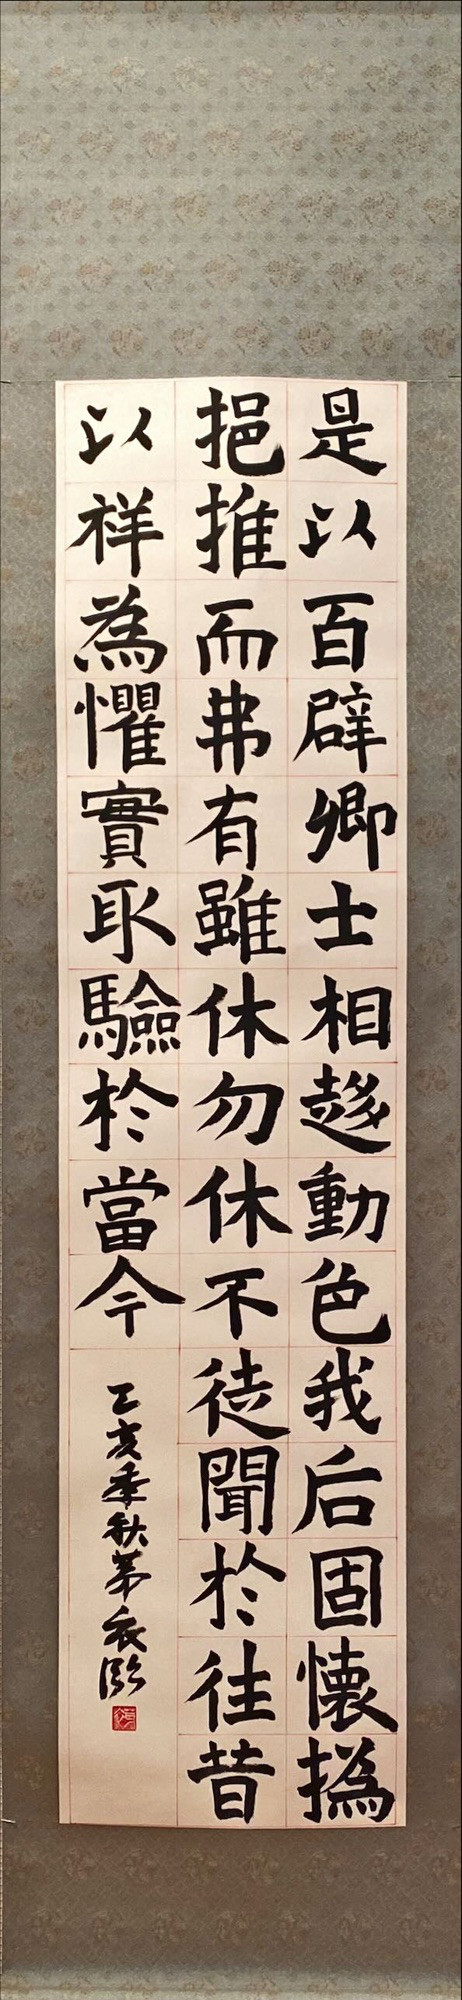 是以百辟卿士相趍動色我后固懷撝
挹推而弗有雖休勿休不徒聞於往昔
以祥為懼實取驗於當今
乙亥季秋